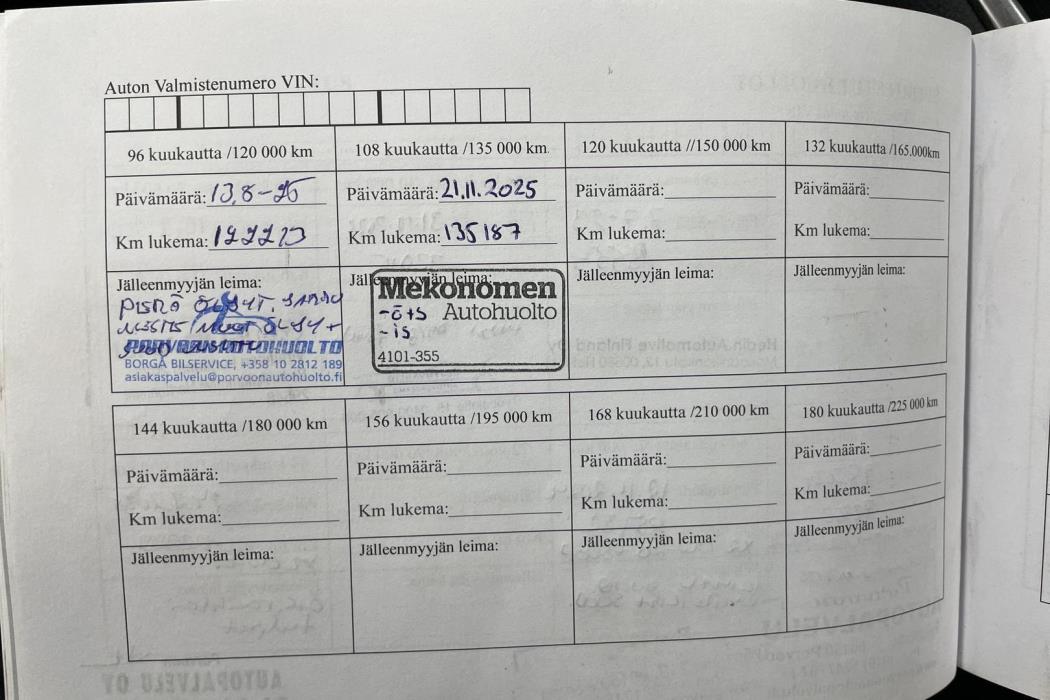 Auton Valmistenumero VIN:
96 kuukautta /120 000 km
Päivämäärä: 13,8-25
Km lukema: 122213
Jälleenmyyjän leima:
PORVOONAUTOHUOLTO
BORGÅ BILSERVICE, +358 10 2812 189
asiakaspalvelu@porvoonautohuolto.fi
108 kuukautta /135 000 km
Päivämäärä: 21.11.2025
Km lukema: 135187
Jälleenmyyjän leima:
Mekonomen
-ö+s Autohuolto
-is
4101-355
120 kuukautta //150 000 km
Päivämäärä:
Km lukema:
Jälleenmyyjän leima:
132 kuukautta /165.000km
Päivämäärä:
Km lukema:
Jälleenmyyjän leima:
144 kuukautta /180 000 km
Päivämäärä:
Km lukema:
Jälleenmyyjän leima:
156 kuukautta /195 000 km
Päivämäärä:
Km lukema:
Jälleenmyyjän leima:
168 kuukautta /210 000 km
Päivämäärä:
Km lukema:
Jälleenmyyjän leima:
180 kuukautta /225 000 km
Päivämäärä:
Km lukema:
Jälleenmyyjän leima: